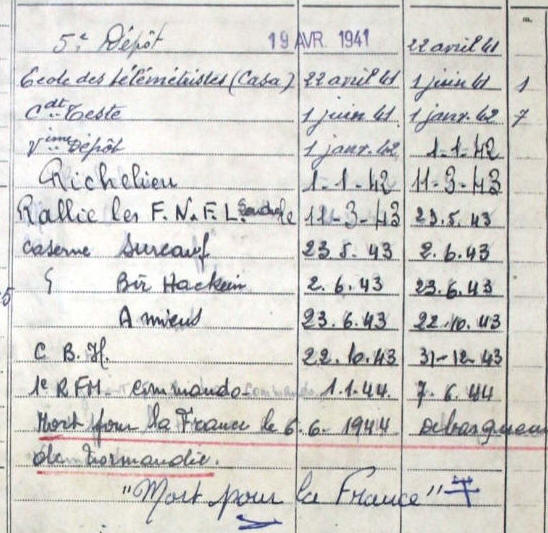 5e Dépôt 19 AVR. 1941 22 avril 41
Ecole des télémétristes (Casa) 22 avril 41 1 juin 41 1
Cdt Teste 1 juin 41 1 janv. 42 7
Vime Dépôt 1 janv. 42 1-1-42
Richelieu 1-1-42 11-3-43
Rallie les F.N.F.L. 11-3-43 23.5.43
Caserne Surcouf 23.5.43 2.6.43
Bir Hackeim 2.6.43 23.6.43
Amiens 23.6.43 22.10.43
C.B.H. 22.10.43 31-12-43
1e RFM Commando 1.1.44. 7.6.44
Mort pour la France le 6.6.1944 Débarquement
de Normandie.
"Mort pour la France"